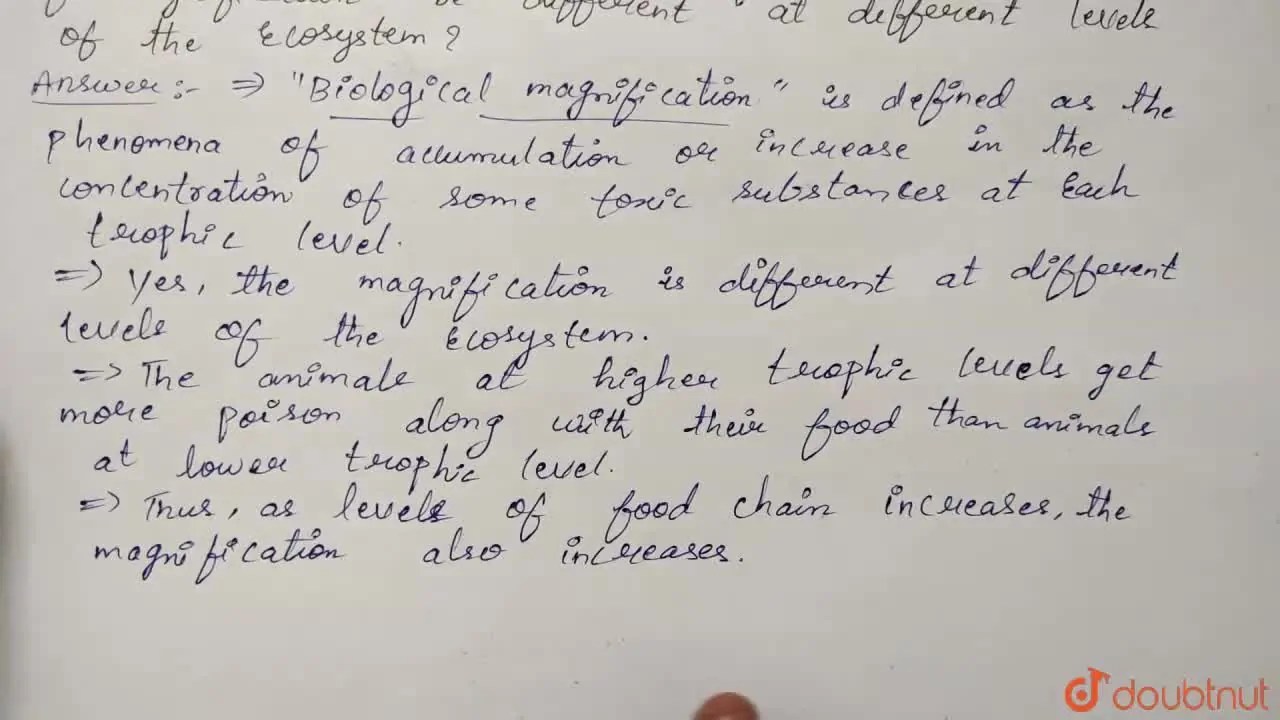 different at different levels
of the Ecosystem?
Answer:- ⇒ "Biological magnification" is defined as the
phenomena of accumulation or increase in the
concentration of some toxic substances at Each
trophic level.
=> Yes, the magnification is different at different
levels of the Ecosystem.
=> The animals at higher trophic levels get
more poison along with their food than animals
at lower trophic level.
=> Thus, as levels of food chain increases, the
magnification also increases.
doubtnut